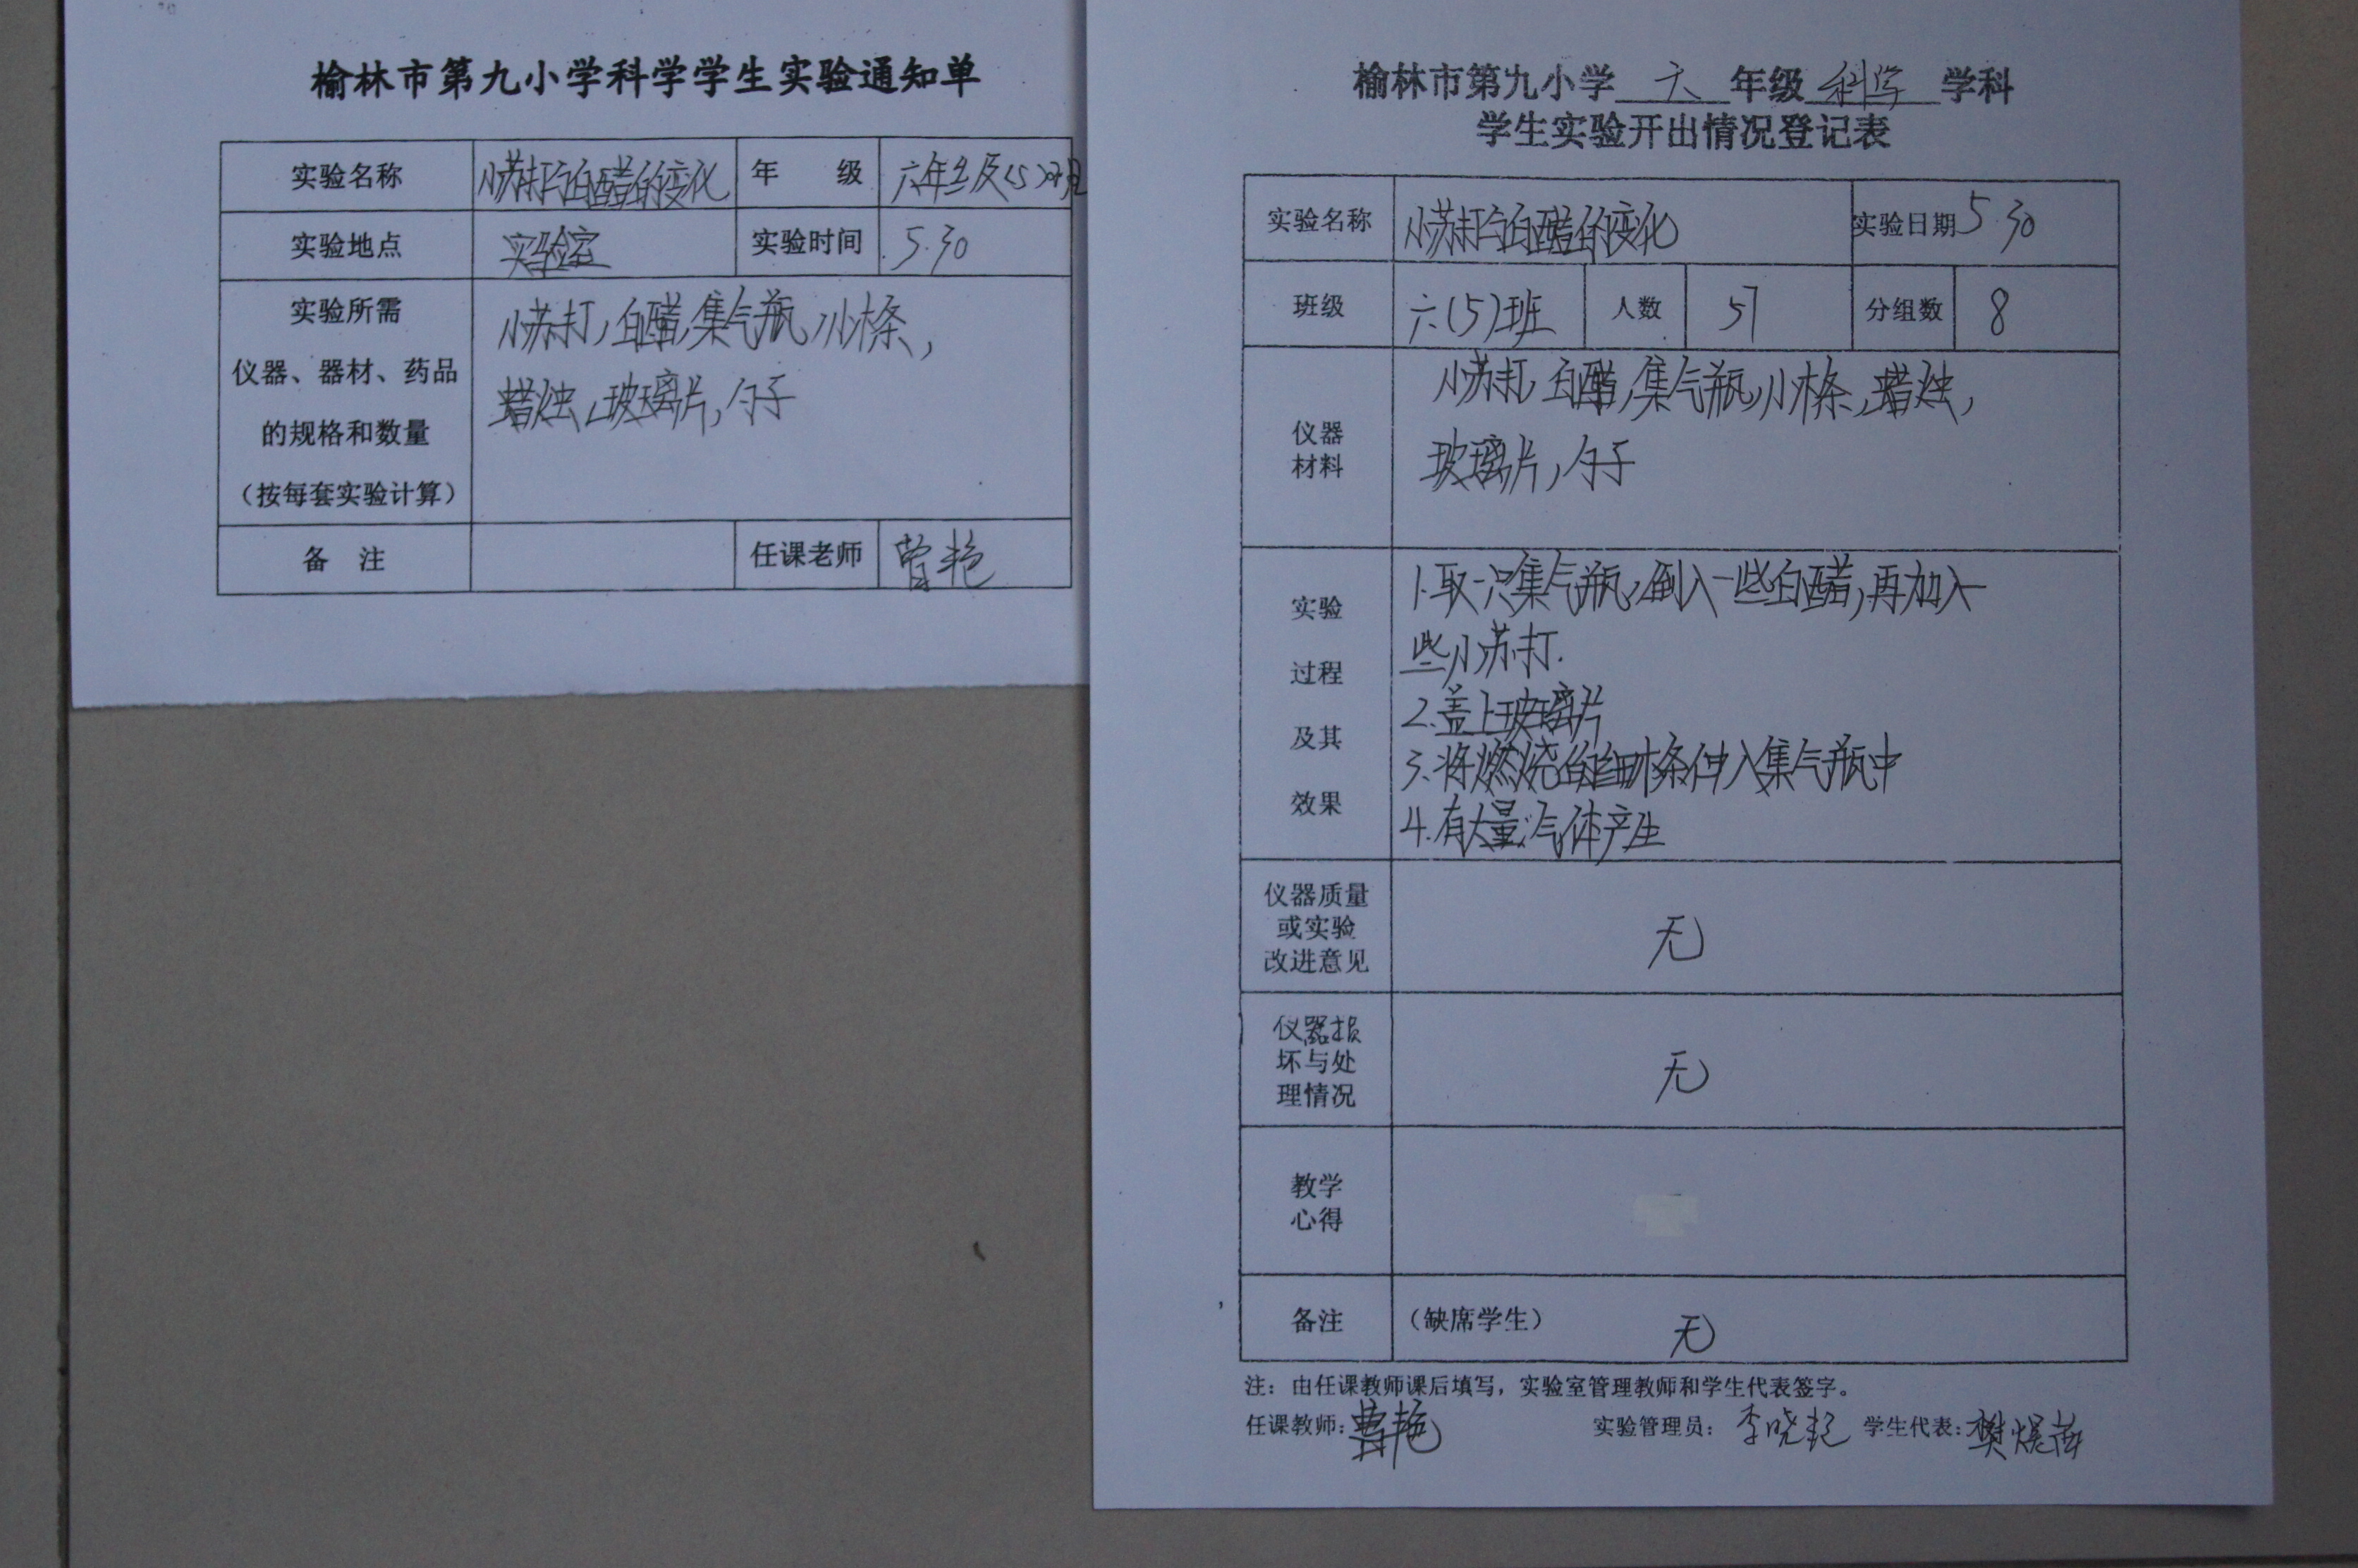 榆林市第九小学科学学生实验通知单
实验名称 小苏打与白醋的变化 年 级 六年级(5)班
实验地点 实验室 实验时间 5.30
实验所需
仪器、器材、药品
的规格和数量
（按每套实验计算）
小苏打,白醋,集气瓶,小木条,
蜡烛,玻璃片,勺子
备 注 任课老师 曹艳
榆林市第九小学 六 年级 科学 学科
学生实验开出情况登记表
实验名称 小苏打与白醋的变化 实验日期 5.30
班级 六(5)班 人数 57 分组数 8
仪器
材料
小苏打,白醋,集气瓶,小木条,蜡烛,
玻璃片,勺子
实验
过程
及其
效果
1.取一只集气瓶,倒入一些白醋,再加入一
些小苏打.
2.盖上玻璃片
3.将燃烧的细木条伸入集气瓶中
4.有大量气体产生
仪器质量
或实验
改进意见
无
仪器损
坏与处
理情况
无
教学
心得
备注 （缺席学生） 无
注：由任课教师课后填写，实验室管理教师和学生代表签字。
任课教师:曹艳 实验管理员： 李晓 学生代表:樊煜